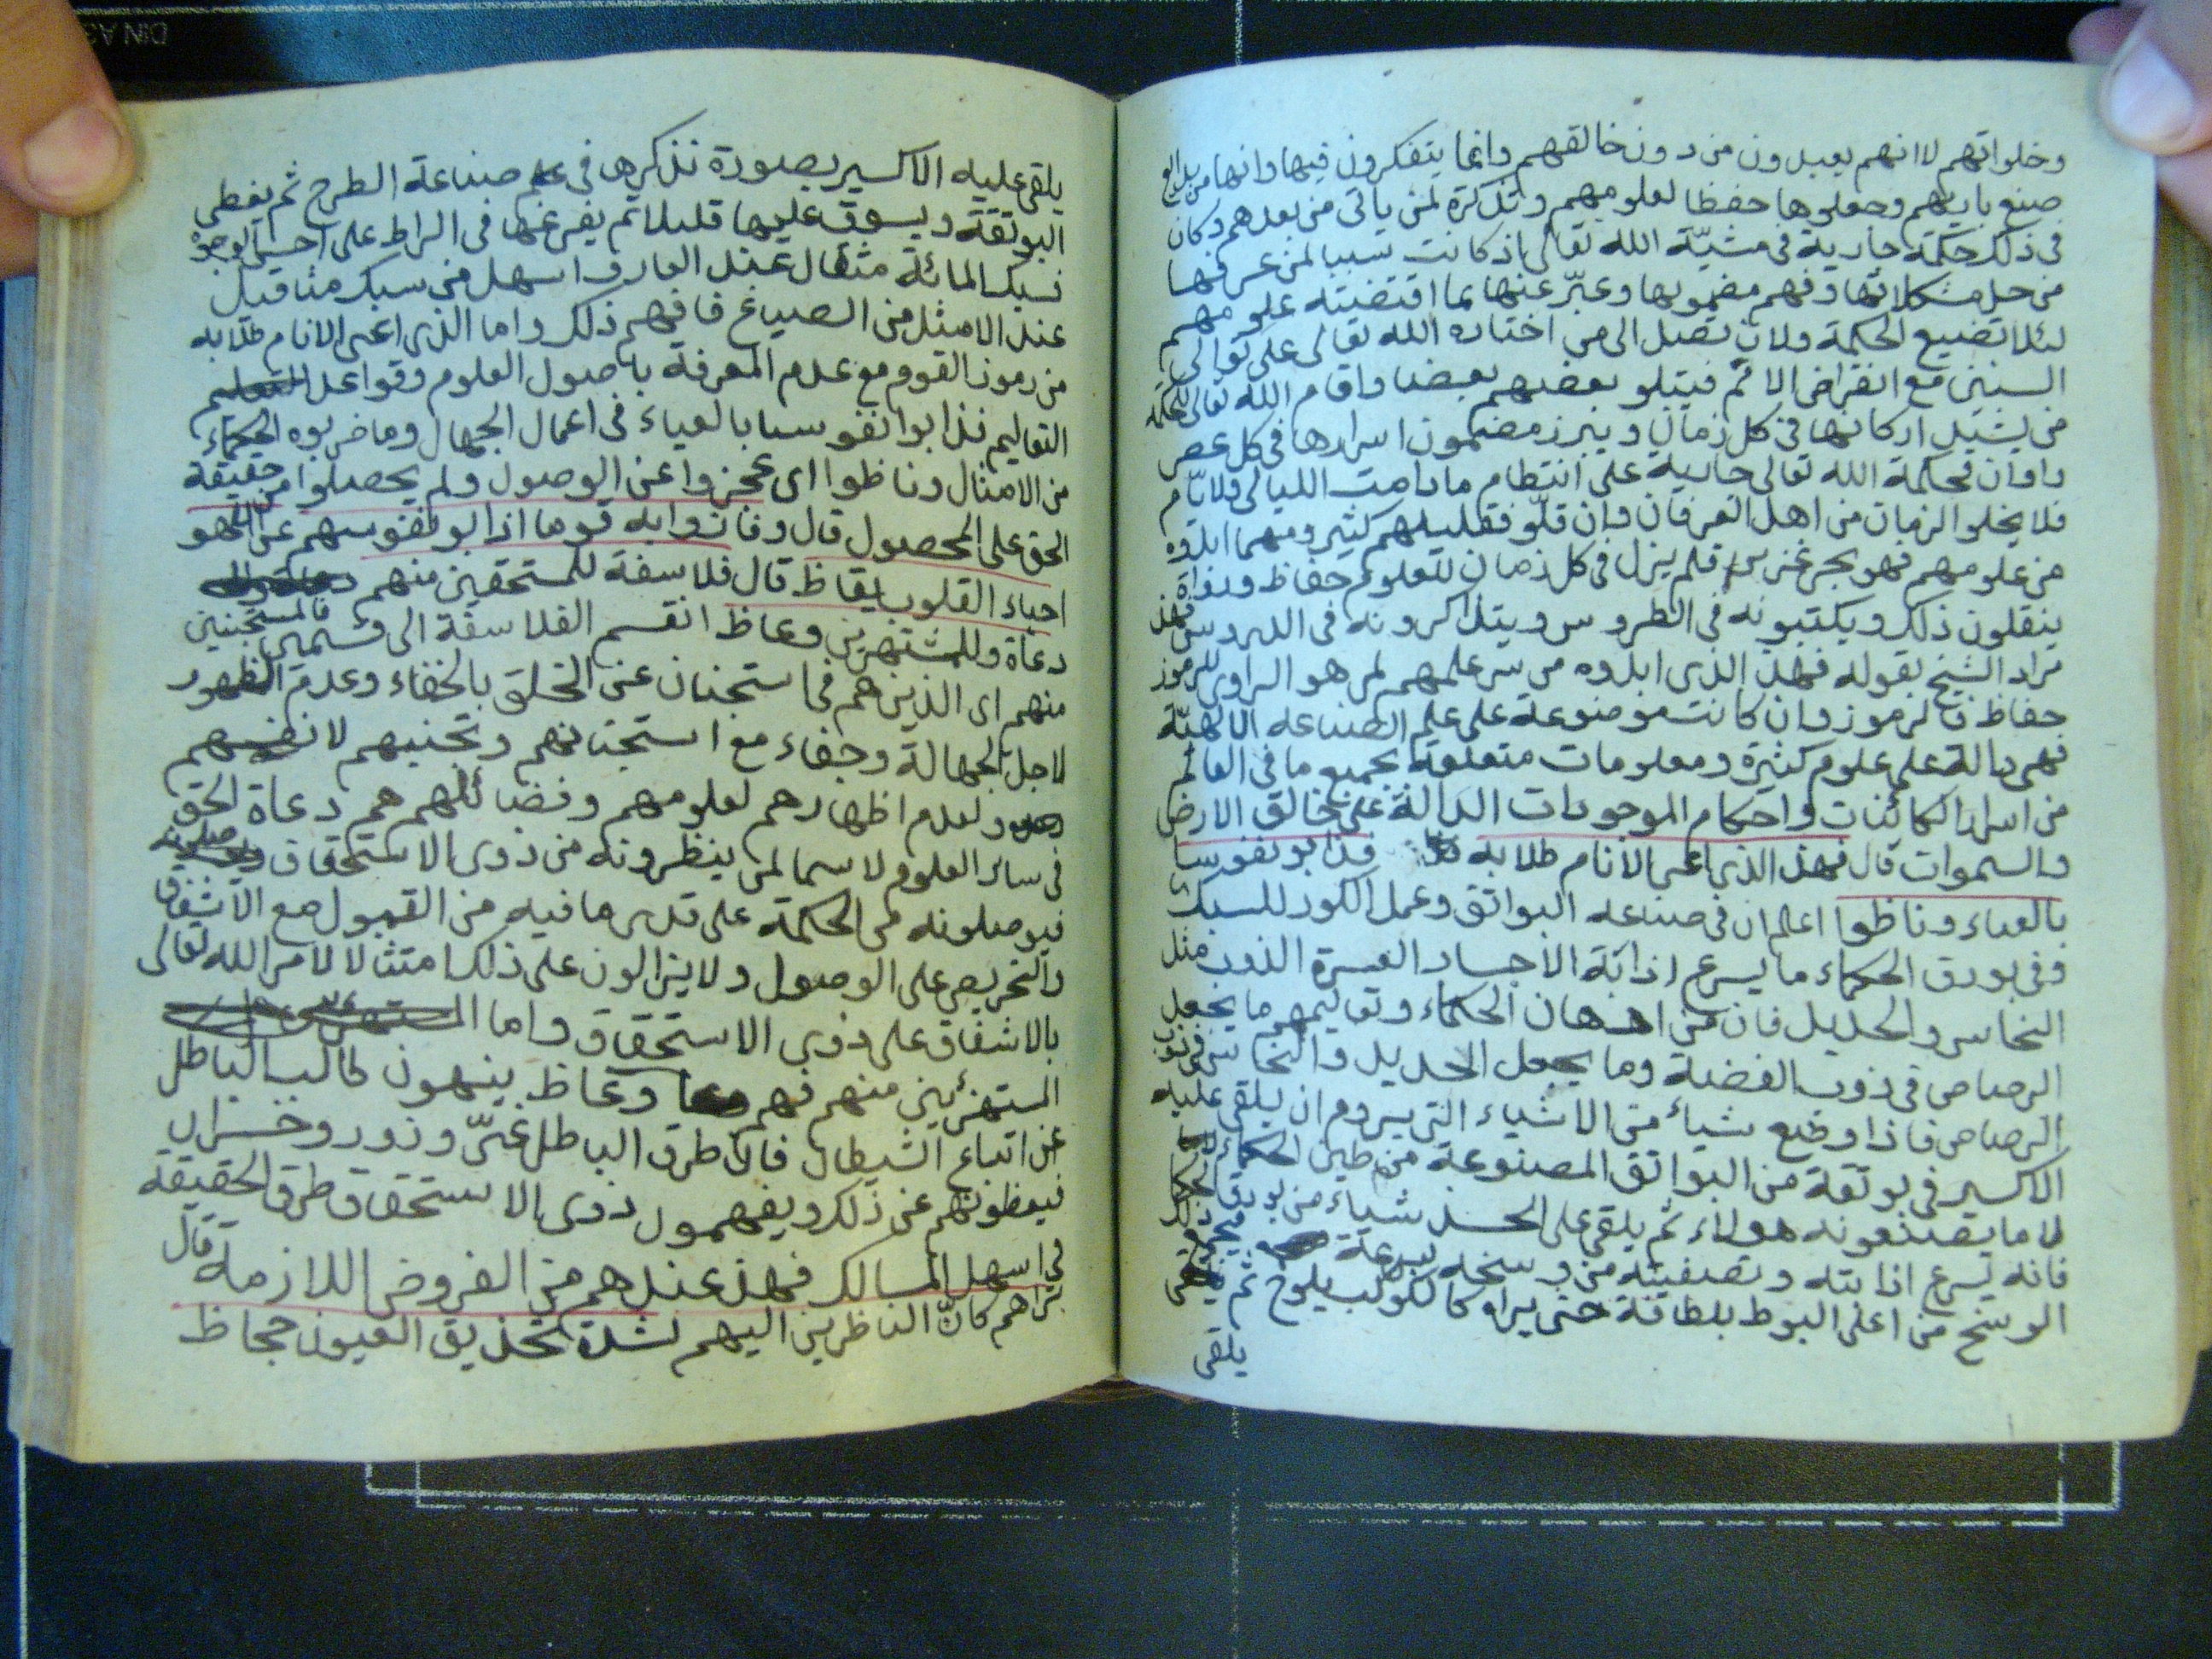 وخلواتهم لا انهم يعبدون من دون خالقهم وانما يتفكرون فيها وانها من بدايع
صنع باريهم وجعلوها حفظا لعلومهم وتذكرة لمن ياتى من بعدهم وكان
فى ذلك حكمة جارية فى مشيّة الله تعالى اذ كانت سببا لمن عرفها
من حل مشكلاتها وفهم مضمونها وعبّر عنها بما اقتضته علومهم
لئلا تضيع الحكمة ولان تصل الى من اختاره الله تعالى على توالى
السنين مع انقراض الامم فيتلو بعضهم بعضا واقام الله تعالى للحكمة
من يشيد اركانها فى كل زمان ويبرز مضمون اسرارها فى كل عصر
واوان فحكمة الله تعالى جارية على انتظام ما دامت الليالى والايام
فلا يخلوا الزمان من اهل العرفان وان قلّو فقليلهم كثير ومهما ابدوه
من علومهم فهو بحر غزير فلم يزل فى كل زمان للعلوم حفاظ ورواة
ينقلون ذلك ويكتبونه فى الطروس ويتذاكرونه فى الدروس فهذا
مراد الشيخ بقوله فهذا الذى ابدوه من سر علمهم لمن هو الراوى للرموز
حفاظ فالرموز وان كانت موضوعة على علم الصناعه الالهيّة
فهى دالة على علوم كثيرة ومعلومات متعلقة بجميع ما فى العالم
من اسرار الكائنات واحكام الموجودات الدالة على خالق الارض
والسموات قال فهذا الذى اعمى الانام طلابه فذابو نفوسا
بالعياء وناظوا اعلم ان فى صناعه البواتق وعمل الكور للسبك
وفى بورق الحكماء ما يسرع اذابة الاجساد العسرة الذوب مثل
النحاس والحديد فان من ادهان الحكماء وتعاليمهم ما يجعل
الرصاص فى ذوب الفضة وما يجعل الحديد والنحاس فى ذوب
الرصاص فاذا وضع شياء من الاشياء التى يروم ان يلقى عليه
الاكسير فى بوتقة من البواتق المصنوعة من طين الحكماء
لا ما يصنعونه هولاء ثم يلقى على الجسد شياء من بورق
فانه يسرع اذابته وتصفيته من وسخه بسرعة
الوسخ من اعلى البوط بلطافة حتى يراه كالكوكب يلوح ثم
يلقى
يلقى عليه الاكسير بصورة نذكرها فى علم صناعة الطرح ثم يغطى
البوتقة ويسوق عليها قليلا ثم يفرغها فى الراط على احسن الوجوه
فسبك المائة مثقال عند العارف اسهل من سبك مثاقيل
عند الامثل من الصياغ فافهم ذلك واما الذى اعمى الانام طلابه
من رموز القوم مع عدم المعرفة باصول العلوم وقواعد
التعاليم فذابوا نفوسا بالعياء فى اعمال الجهال وما ضربوه الحكماء
من الامثال وناظوا اى عجزوا عن الوصول ولم يحصلوا من حقيقة
الحق على المحصول قال وفازوا به قوما اذابو نفوسهم عن اللهو
احياء القلوب ايقاظ قال فلاسفة للمستحقين منهم
دعاة وللمستهزين وعاظ انقسم الفلاسفة الى قسمين فالمستجنبين
منهم اى الذين هم فى استجنان عن الخلق بالخفاء وعدم الظهور
لاجل الجهالة وجفاء مع استجنانهم وتجنبهم لانفسهم
ولعدم اظهارهم لعلومهم وفضائلهم هم دعاة الحق
فى ساير العلوم لا سيما لمن ينظرونه من ذوى الاستحقاق
فيوصلونه من الحكمة على قدر ما فيه من القبول مع الاشفاق
والتحريص على الوصول ولا يزالون على ذلك امتثالا لامر الله تعالى
بالاشفاق على ذوى الاستحقاق واما
المستهزئين منهم فهم وعاظ ينهون طالب الباطل
عن اتباع الشيطان فان طرق الباطل غىّ وزور وخسران
فيعظونهم عن ذلك ويفهمون ذوى الاستحقاق طرق الحقيقة
فى اسهل المسالك فهذا عندهم من الفروض اللازمة قال
تراهم كانّ الناظرين اليهم لشدة تحديق العيون جحاظ